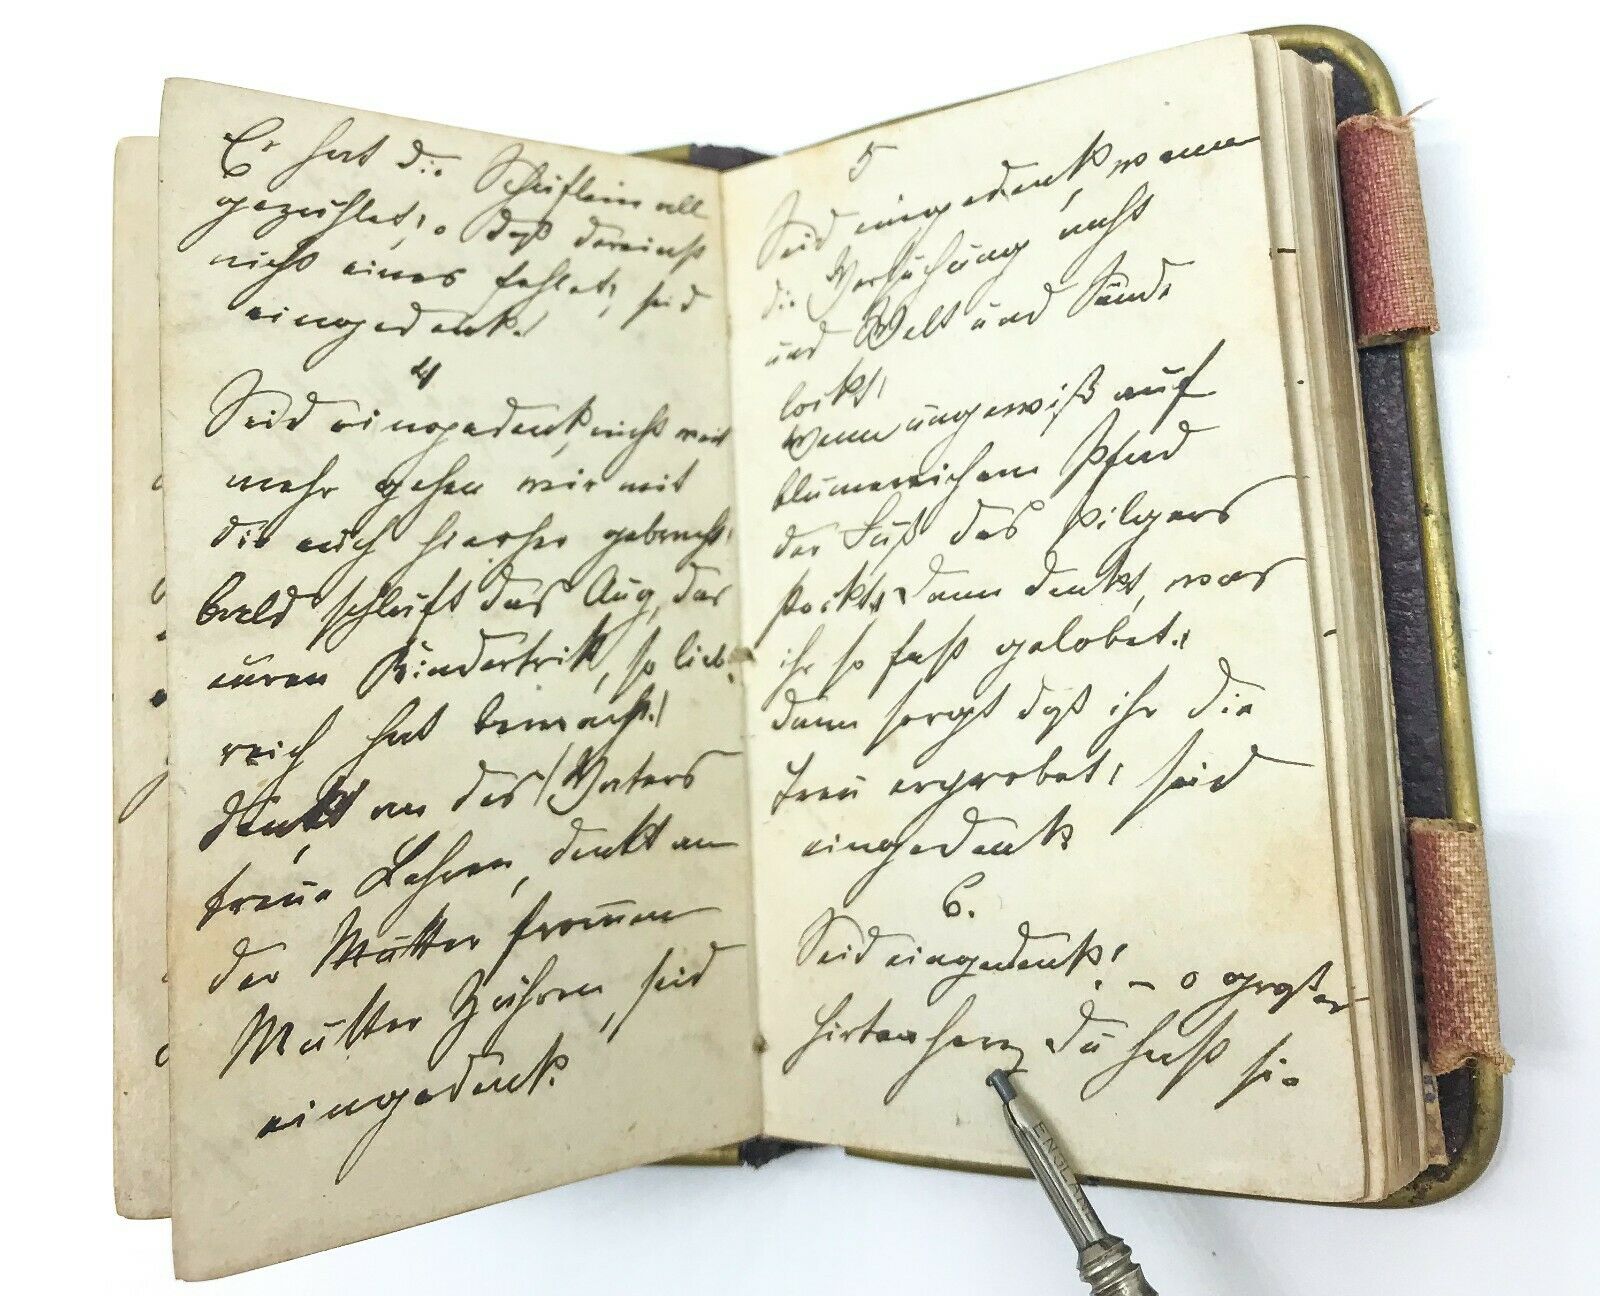 Er hat die Schäflein all
gezählet, daß dereinst
nicht eines fehlet, seid
eingedenk!
4
Seid eingedenk, nicht weit
mehr gehen wir mit
die euch hierher gebracht,
bald schläft das Aug, das
euren Kindertritt, so lieb-
reich hat bewacht!
denkt an des Vaters
treue Lehren, denkt an
der Mutter frommen
Mutter Zähren, seid
eingedenk.
5
Seid eingedenk, wenn
die Versuchung naht
und Welt und Sünde
lockt,
Wenn ungewiß auf
blumenreichem Pfad
der Fuß des Pilgers
stockt, dann denkt, was
ihr so fest gelobet,
dann sorgt daß ihr die
Treu erprobet, seid
eingedenk
6.
Seid eingedenk! – o großer
Hirtenherz du hast sie
ENGLAND